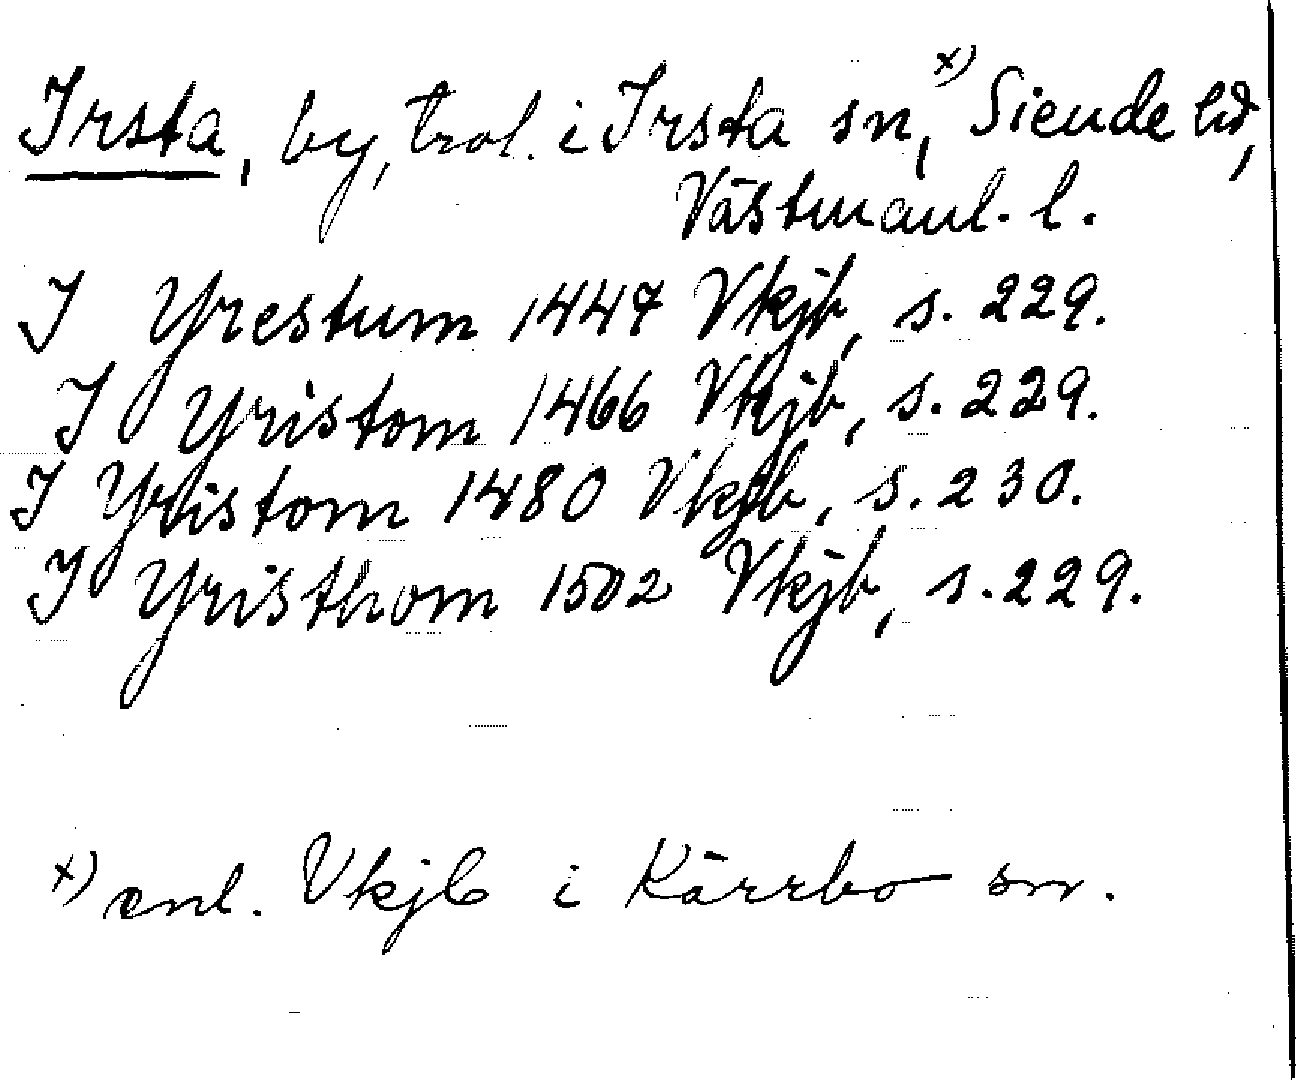 Irsta, by, trol. i Irsta sn, x) Siende hd,
Västmanl. l.
I Yrestum 1447 Vkjb, s. 229.
I Yristom 1466 Vkjb, s. 229.
I Yristom 1480 Vkjb, s. 230.
I Yristhom 1502 Vkjb, s. 229.
x) enl. Vkjb i Kärrbo sn.